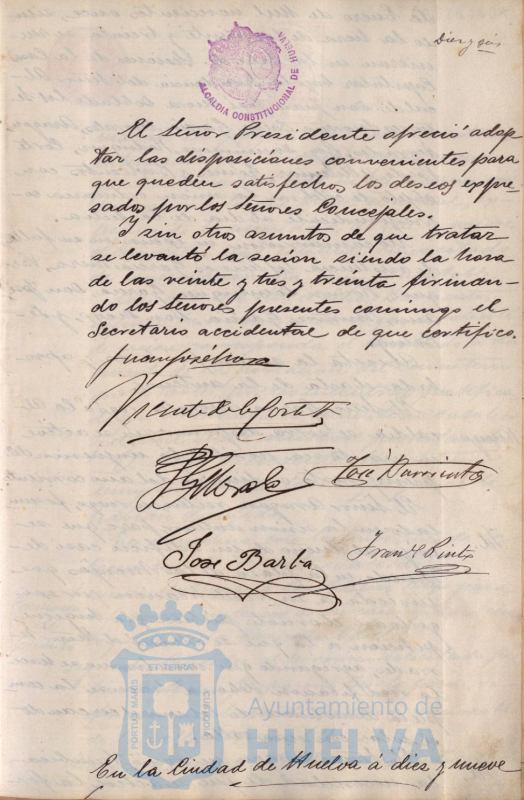 Diez y seis
ALCALDIA CONSTITUCIONAL DE HUELVA
El Señor Presidente ofreció adop-
tar las disposiciones convenientes para
que queden satisfechos los deseos expre-
sados por los Señores Concejales.
Y sin otros asuntos de que tratar
se levantó la sesion siendo la hora
de las veinte y trés y treinta firman-
do los señores presentes conmigo el
Secretario accidental de que certifico.
Juan José
Vicente de la Corte
José Barrientos
José Barba
Pinto
ET TERRAE
PORTUS MARIS
CUSTODIA
Ayuntamiento de
HUELVA
En la Ciudad de Huelva á diez y nueve